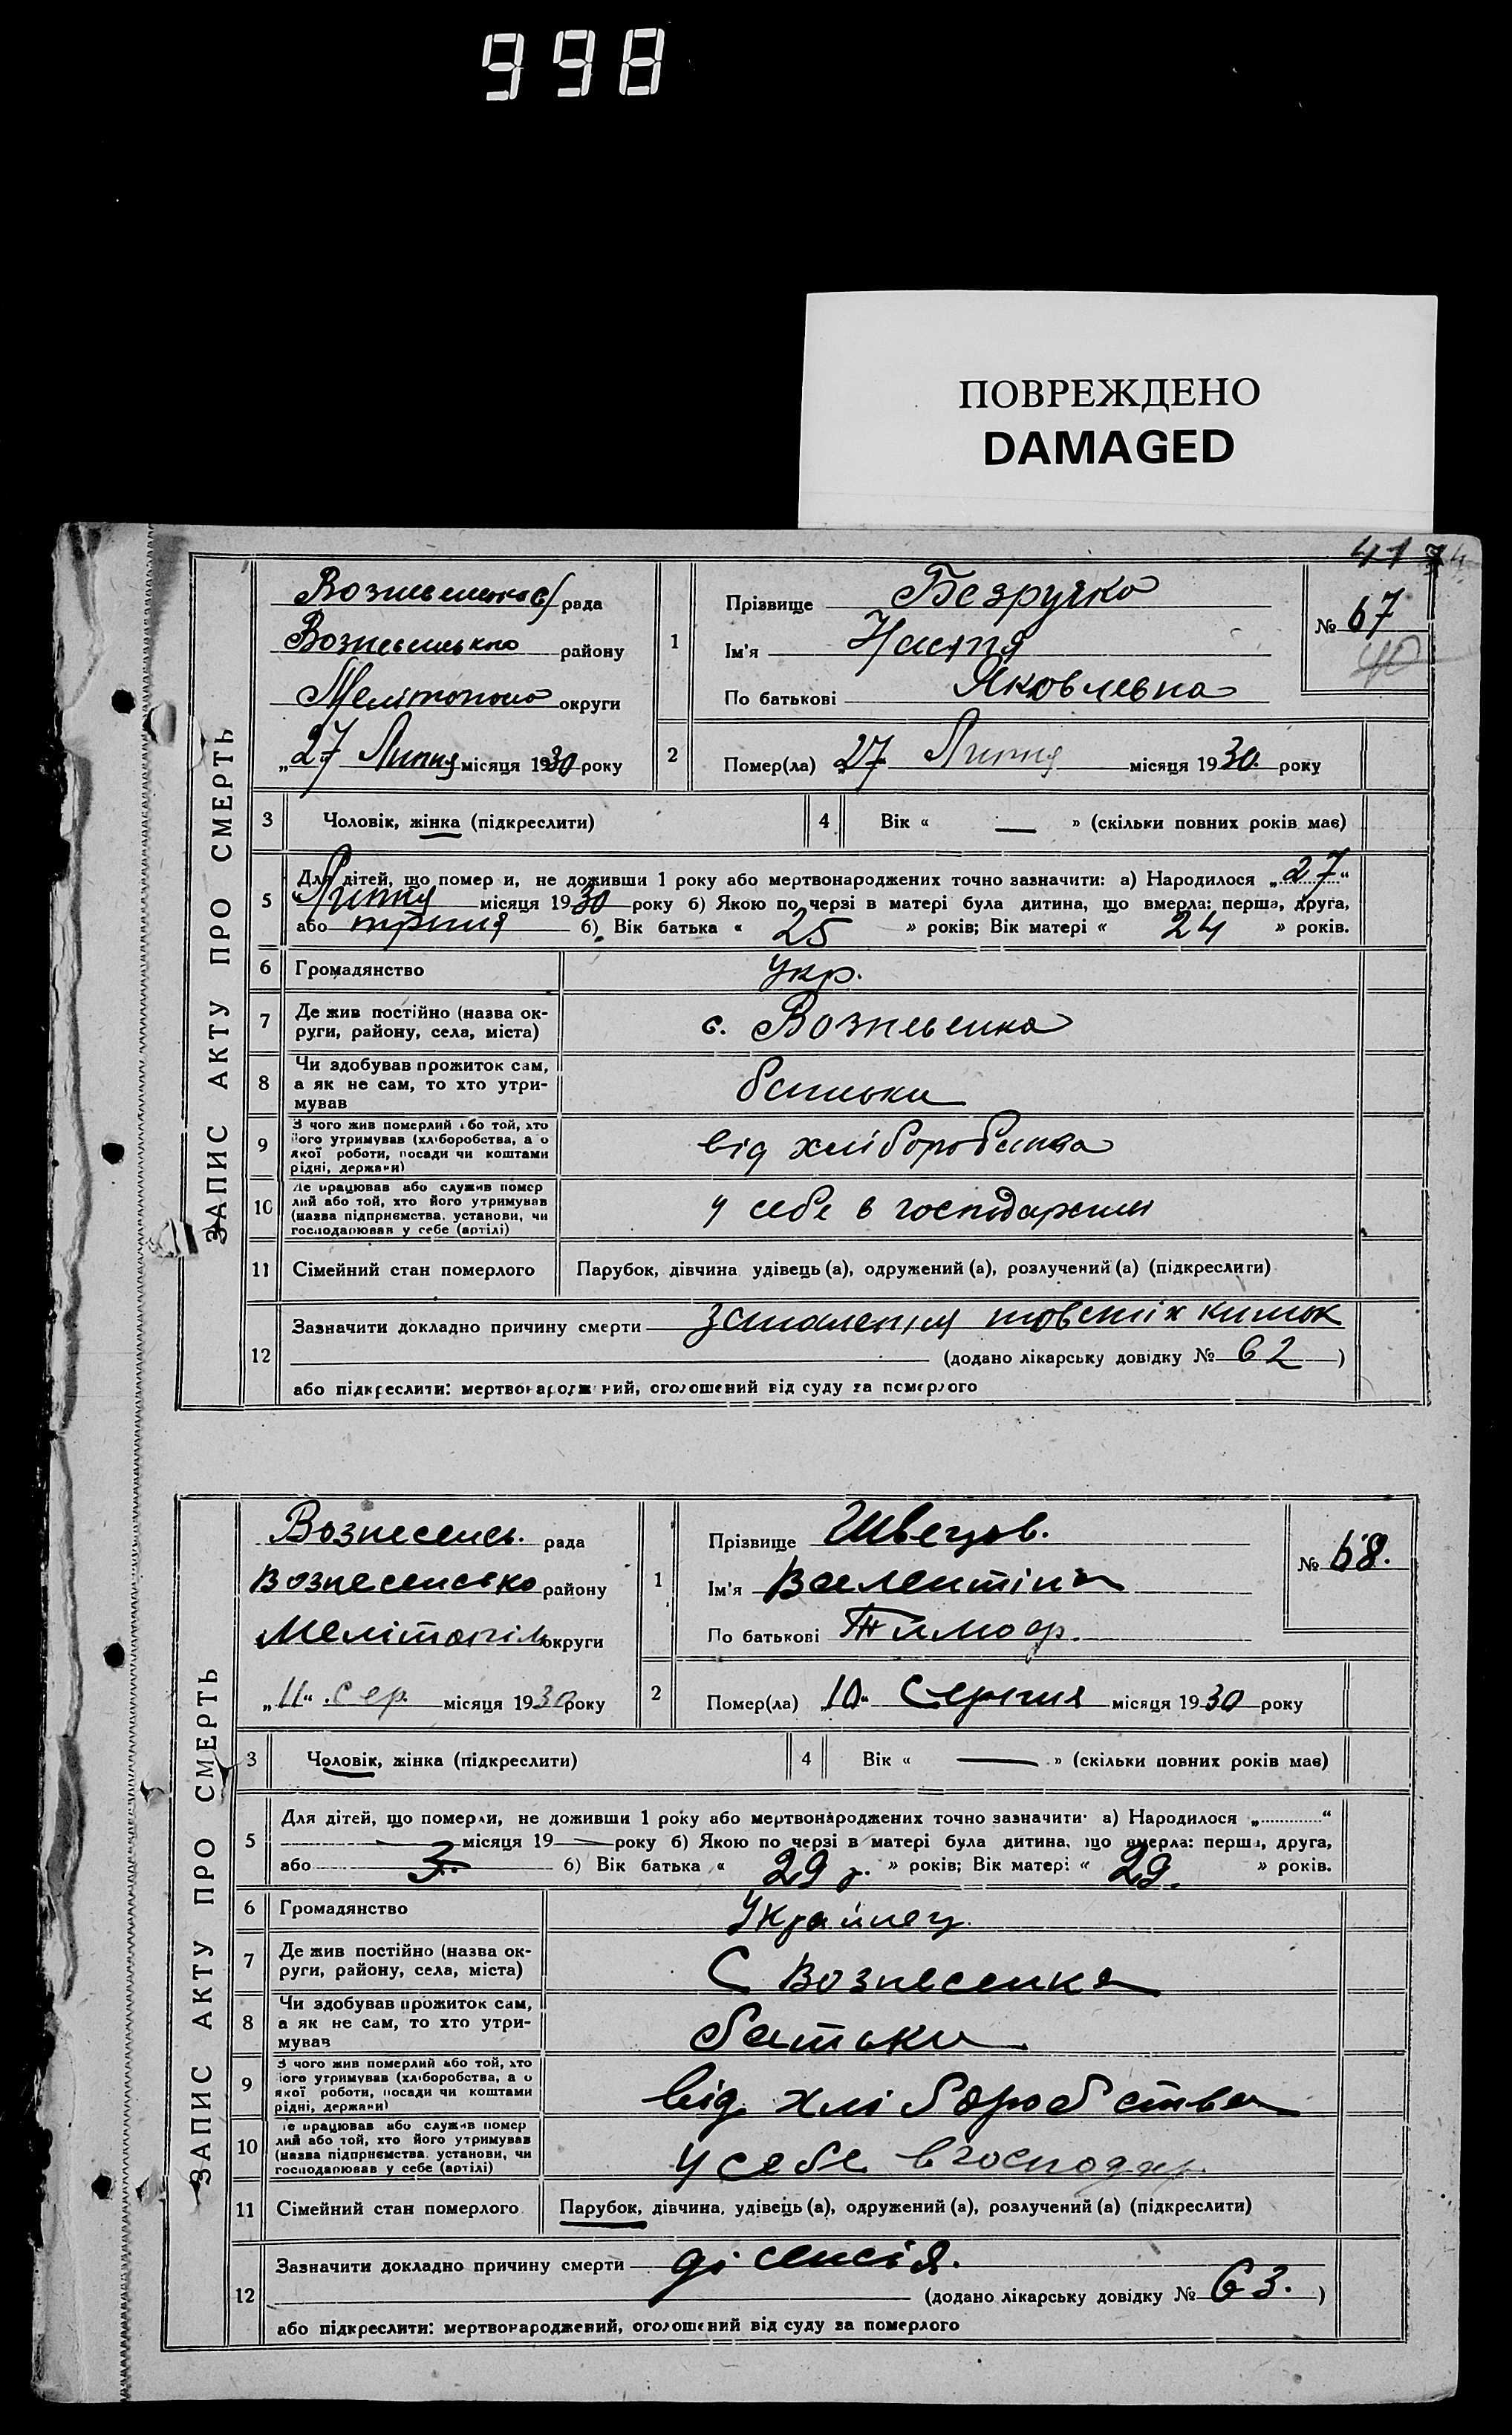 998
ПОВРЕЖДЕНО
DAMAGED
41
ЗАПИС АКТУ ПРО СМЕРТЬ
рада
району
округи
„27 Липня місяця 1930 року
1
Прізвище Безручко
Ім'я Настя
По батькові Яковлевна
№ 67
40
2
Помер(ла) „27 Липня місяця 1930. року
3
Чоловік, жінка (підкреслити)
4
Вік « — » (скільки повних років має)
5
Для дітей, що помер и, не доживши 1 року або мертвонароджених точно зазначити: а) Народилося „27“
Липня місяця 1930 року б) Якою по черзі в матері була дитина, що вмерла: перша, друга,
або третя б) Вік батька « 25 » років; Вік матері « 24 » років.
6
Громадянство
Укр.
7
Де жив постійно (назва ок-
руги, району, села, міста)
с. Вознесенка
8
Чи здобував прожиток сам,
а як не сам, то хто утри-
мував
батьки
9
З чого жив померлий або той, хто
його утримував (хліборобства, а о
якої роботи, посади чи коштами
рідні, держави)
від хліборобства
10
Де працював або служив помер
лий або той, хто його утримував
(назва підприємства, установи, чи
господарював у себе (артілі)
у себе в господарстві
11
Сімейний стан померлого
Парубок, дівчина удівець (а), одружений (а), розлучений (а) (підкреслити)
12
Зазначити докладно причину смерти запаления товстих кишок
(додано лікарську довідку № 62)
або підкреслити: мертвонароджений, оголошений від суду за померлого
ЗАПИС АКТУ ПРО СМЕРТЬ
Вознесенсь. рада
Вознесенсько району
Мелітопіл округи
„11“ сер. місяця 1930 року
1
Прізвище Швецов.
Ім'я Валентін
По батькові Тимоф.
№ 68.
2
Помер(ла) „10“ Серпня місяця 1930 року
3
Чоловік, жінка (підкреслити)
4
Вік « — » (скільки повних років має)
5
Для дітей, що померли, не доживши 1 року або мертвонароджених точно зазначити: а) Народилося „ “
— місяця 19— року б) Якою по черзі в матері була дитина, що вмерла: перша, друга,
або 3. б) Вік батька « 29 р. » років; Вік матері « 29. » років.
6
Громадянство
Українец.
7
Де жив постійно (назва ок-
руги, району, села, міста)
С Вознесенка
8
Чи здобував прожиток сам,
а як не сам, то хто утри-
мував
батьки
9
З чого жив померлий або той, хто
його утримував (хліборобства, а о
якої роботи, посади чи коштами
рідні, держави)
від хліборобства
10
Де працював або служив помер
лий або той, хто його утримував
(назва підприємства, установи, чи
господарював у себе (артілі)
у себе в господар.
11
Сімейний стан померлого
Парубок, дівчина, удівець (а), одружений (а), розлучений (а) (підкреслити)
12
Зазначити докладно причину смерти
(додано лікарську довідку № 63.)
або підкреслити: мертвонароджений, оголошений від суду за померлого